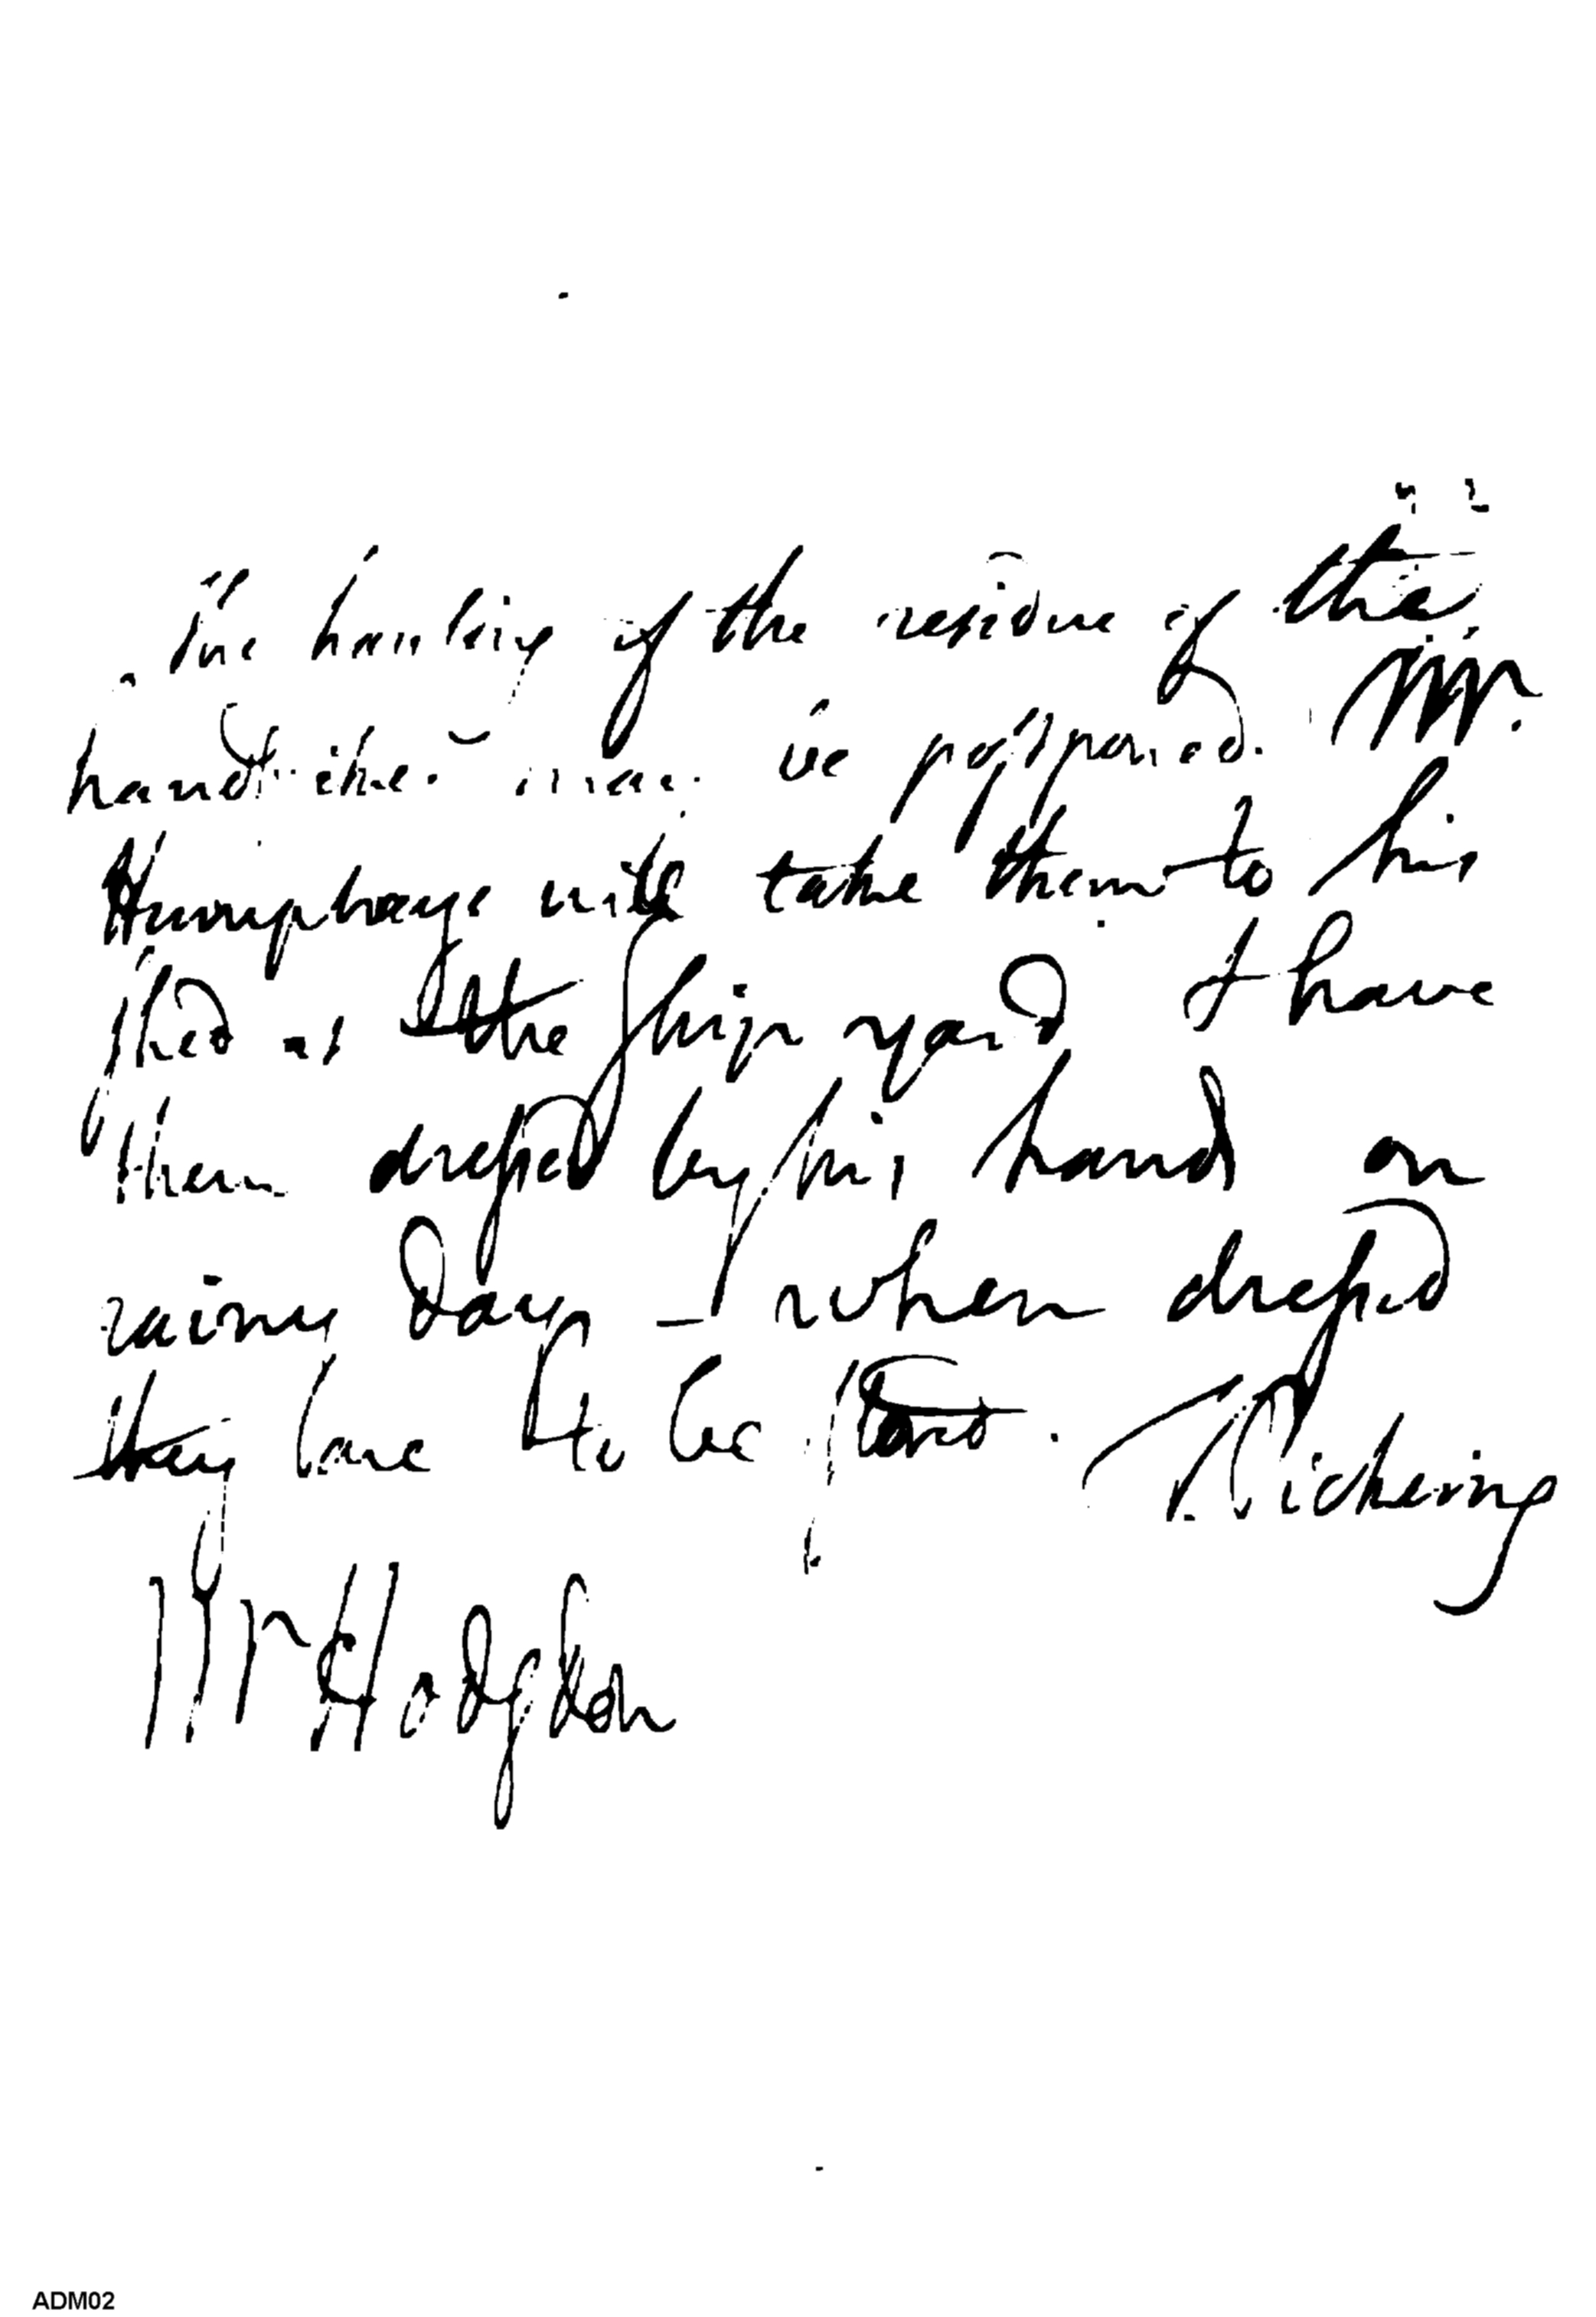 The hauling of the residue of the
handspikes may be postponed. Mr.
Humphreys will take them to his
shed at the ship yard & have
them dressed by his hands on
rainy days – when dressed
they are to be stored. T Pickering
Mr Hodgdon
ADM02